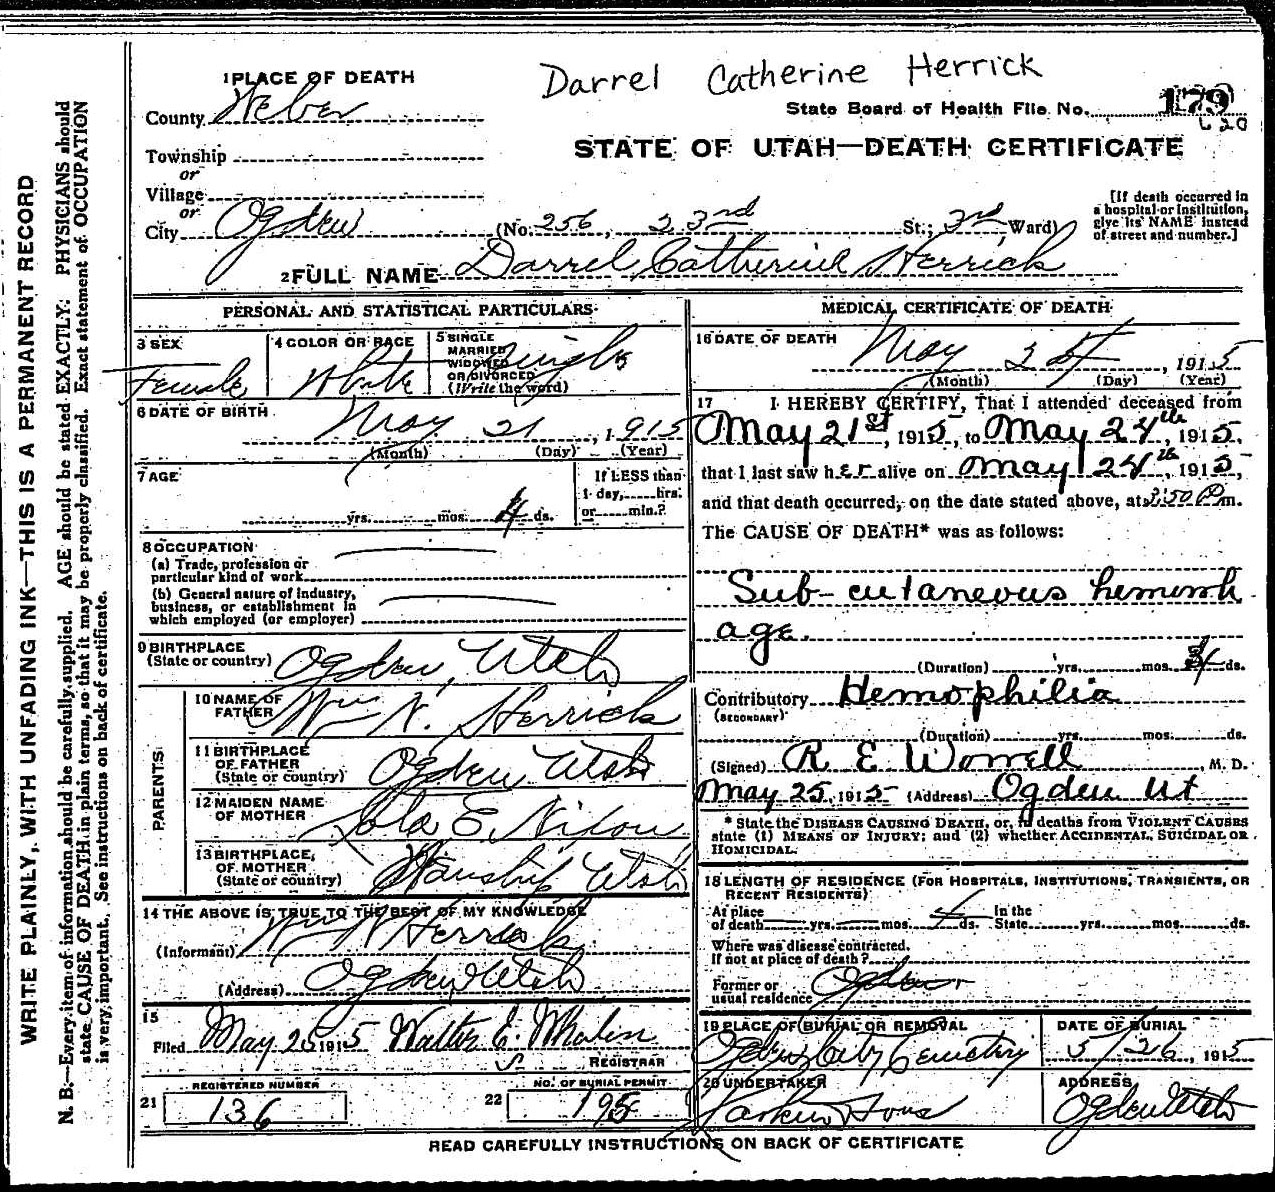 Darrel Catherine Herrick
1 PLACE OF DEATH
County Weber
State Board of Health File No. 179
620
STATE OF UTAH—DEATH CERTIFICATE
Township
or
Village
or
City Ogden (No. 256, 23rd St.; 3rd Ward)
[If death occurred in
a hospital or institution,
give its NAME instead
of street and number.]
2 FULL NAME Darrel Catherine Herrick
PERSONAL AND STATISTICAL PARTICULARS
3 SEX
Female
4 COLOR OR RACE
White
5 SINGLE
MARRIED
WIDOWED
OR DIVORCED
(Write the word)
Single
6 DATE OF BIRTH
May 21, 1915
(Month) (Day) (Year)
7 AGE
yrs. mos. 4 ds.
If LESS than
1 day, hrs.
or min.?
8 OCCUPATION
(a) Trade, profession or
particular kind of work
(b) General nature of industry,
business, or establishment in
which employed (or employer)
9 BIRTHPLACE
(State or country) Ogden, Utah
PARENTS
10 NAME OF
FATHER Wm N. Herrick
11 BIRTHPLACE
OF FATHER
(State or country) Ogden Utah
12 MAIDEN NAME
OF MOTHER Lola E. Nixon
13 BIRTHPLACE,
OF MOTHER
(State or country) Wanship Utah
14 THE ABOVE IS TRUE TO THE BEST OF MY KNOWLEDGE
(Informant) Wm N Herrick
(Address) Ogden Utah
15
Filed May 25 1915 Walter E. Whalen
REGISTRAR
REGISTERED NUMBER
21 136
NO. OF BURIAL PERMIT
22 195
MEDICAL CERTIFICATE OF DEATH
16 DATE OF DEATH
May 24, 1915
(Month) (Day) (Year)
17 I HEREBY CERTIFY, That I attended deceased from
May 21st, 1915, to May 24th, 1915,
that I last saw her alive on May 24th, 1915,
and that death occurred, on the date stated above, at :50 P m.
The CAUSE OF DEATH* was as follows:
Sub-cutaneous hemorrh
age.
(Duration) yrs. mos. ds.
Contributory Hemophilia
(SECONDARY)
(Duration) yrs. mos. ds.
(Signed) R E Worrell, M. D.
May 25, 1915 (Address) Ogden Ut
* State the DISEASE CAUSING DEATH, or, in deaths from VIOLENT CAUSES
state (1) MEANS OF INJURY; and (2) whether ACCIDENTAL, SUICIDAL OR
HOMICIDAL.
18 LENGTH OF RESIDENCE (FOR HOSPITALS, INSTITUTIONS, TRANSIENTS, OR
RECENT RESIDENTS)
At place
of death yrs. mos. 4 ds. In the
State yrs. mos. ds.
Where was disease contracted,
If not at place of death?
Former or
usual residence Ogden
19 PLACE OF BURIAL OR REMOVAL
Ogden City Cemetery
DATE OF BURIAL
5/26, 1915
20 UNDERTAKER
Larkin & Sons
ADDRESS
Ogden Utah
READ CAREFULLY INSTRUCTIONS ON BACK OF CERTIFICATE
WRITE PLAINLY, WITH UNFADING INK—THIS IS A PERMANENT RECORD
N. B.—Every item of information should be carefully supplied. AGE should be stated EXACTLY. PHYSICIANS should
state CAUSE OF DEATH in plain terms, so that it may be properly classified. Exact statement of OCCUPATION
is very important. See instructions on back of certificate.